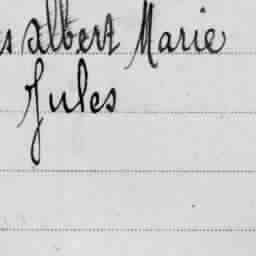 s Albert Marie
Jules